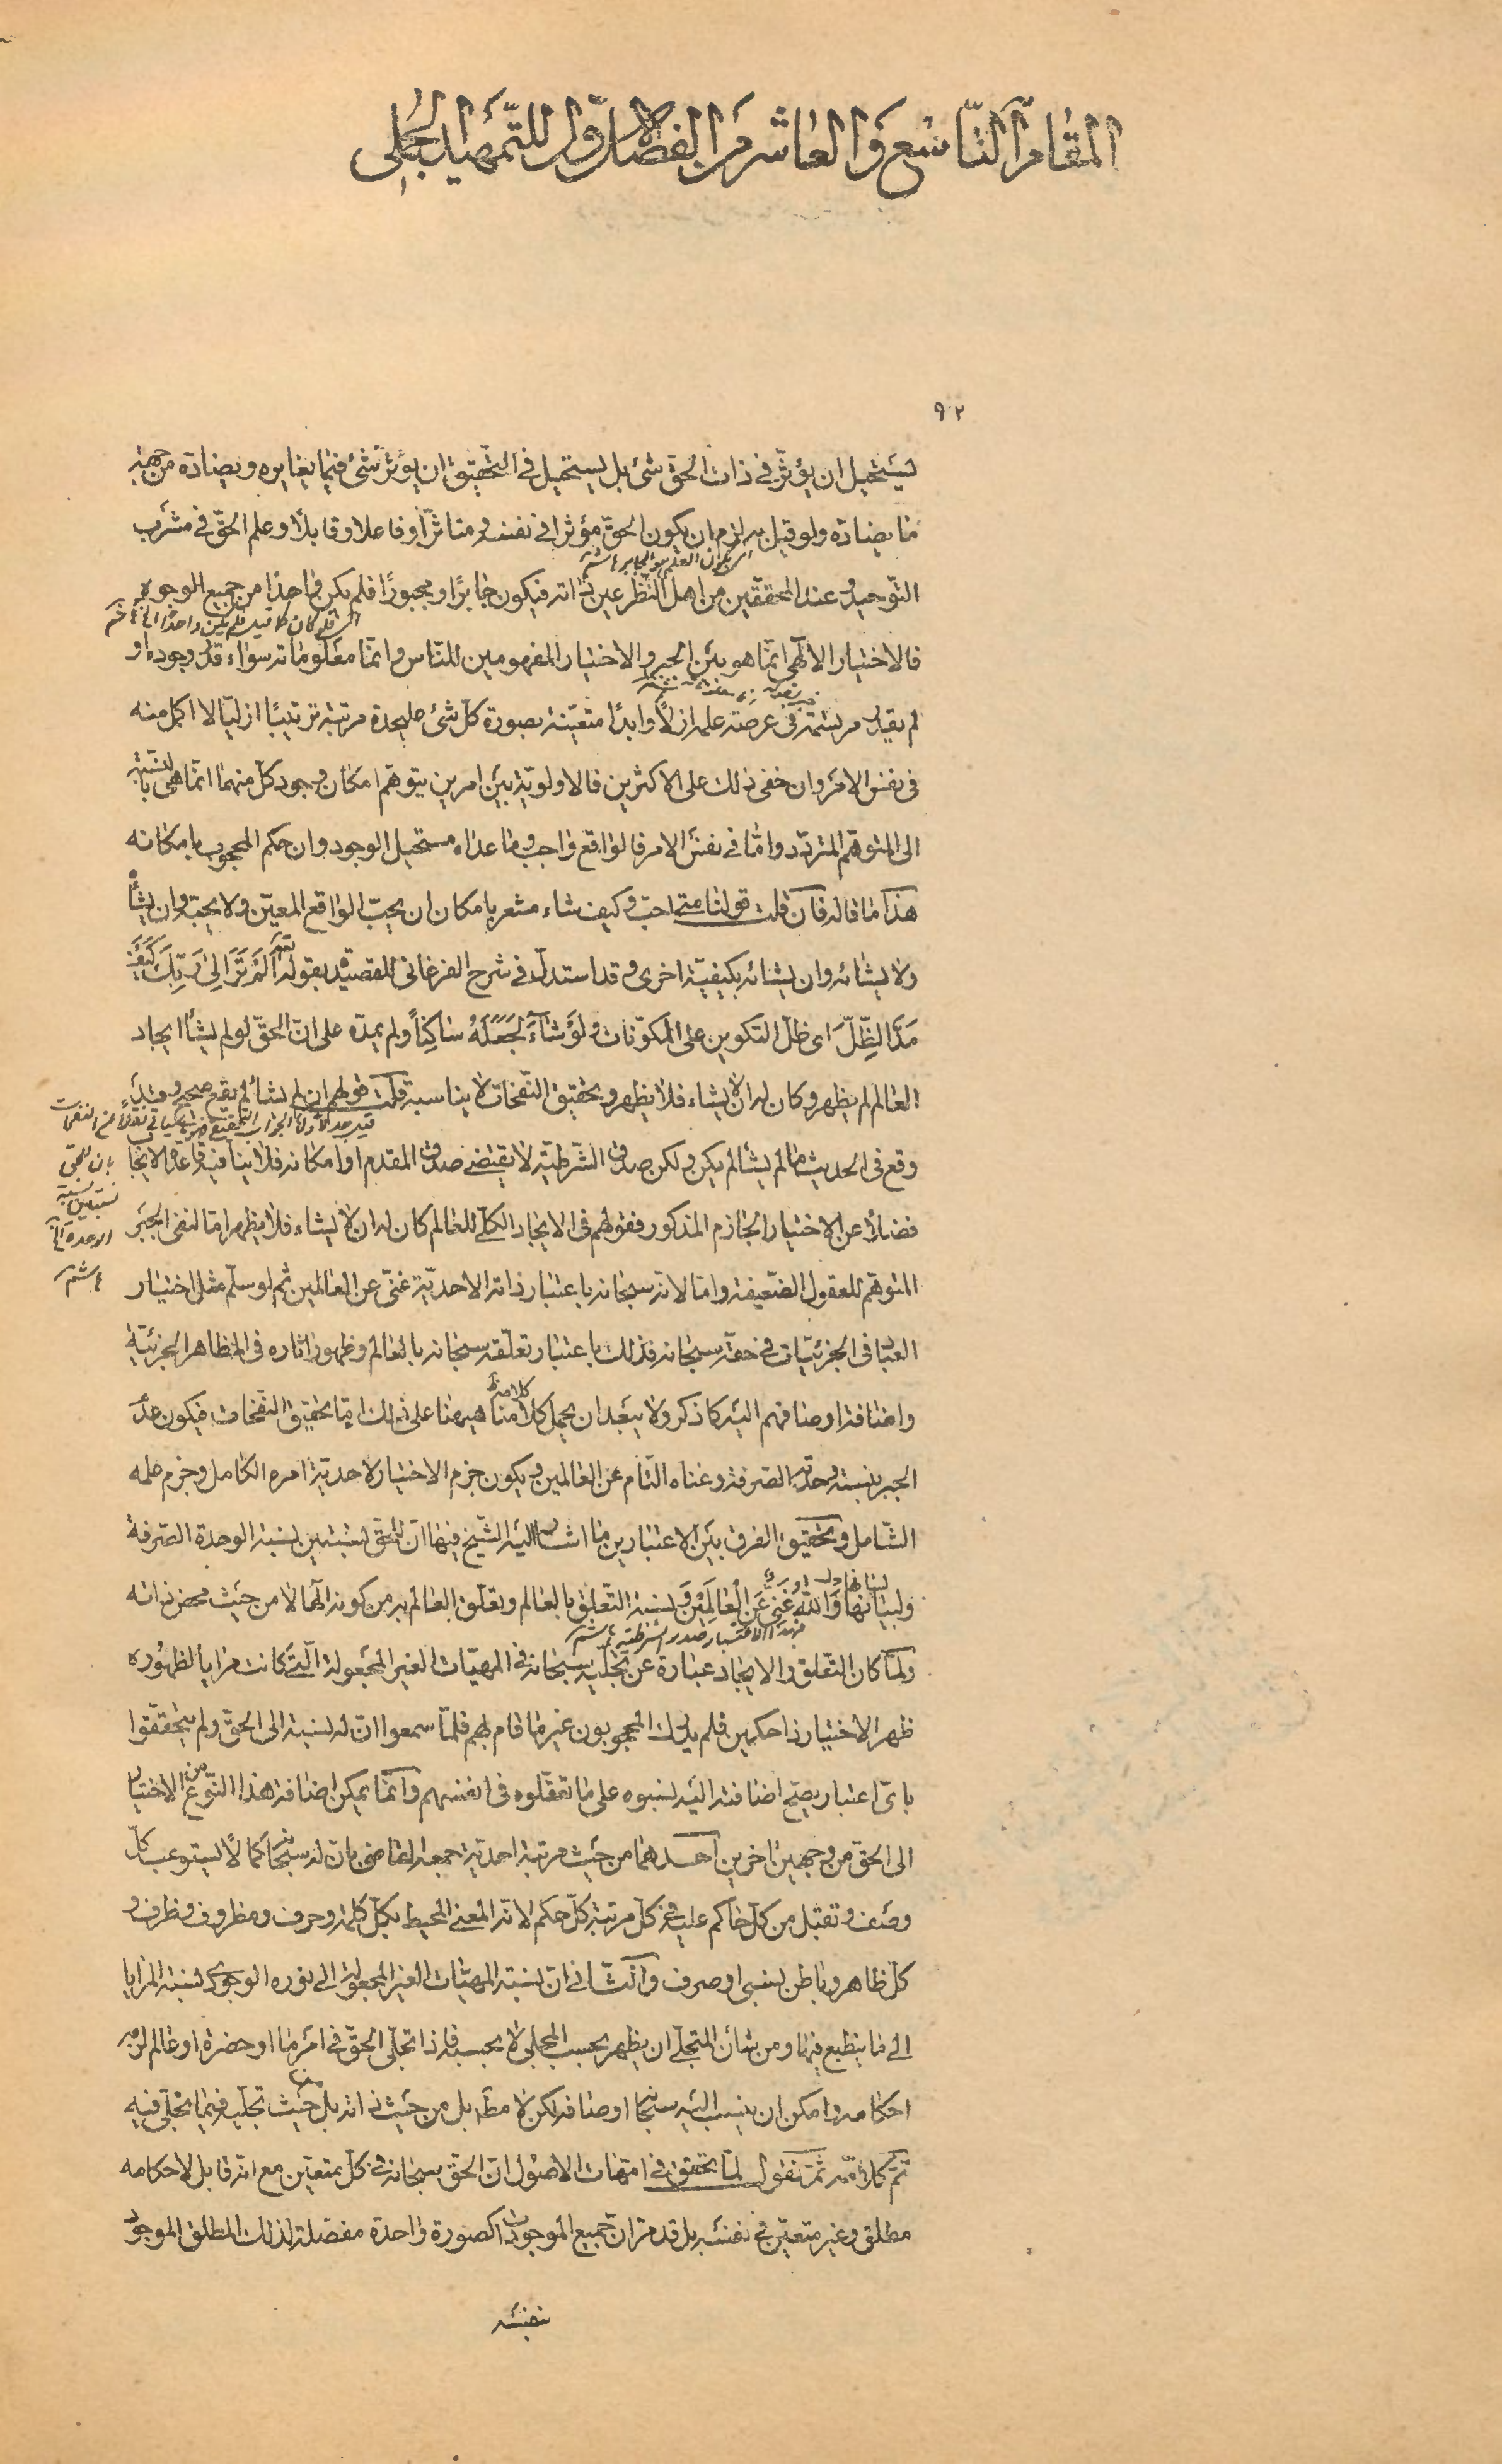 المقام التاسع والعاشر من الفصل الاول للتمهيد الجملى
٩٢
يستحيل ان يؤثر فى ذات الحق شئ بل يستحيل فى التحقيق ان يؤثر شئ فيما يغايره ويضاده من جهة
ما يضاده ولو قيل به لزم ان يكون الحق مؤثرا فى نفسه ومتاثرا وفاعلا وقابلا وعلم الحق فى مشرب
التوحيد وعند المحققين من اهل النظر عين ذاته فيكون جابرًا ومجبورًا فلم يكن واحدًا من جميع الوجوه
فالاختيار الالهى انما هو بين الجبر والاختيار المفهومين للناس وانما معلوماته سواء قدر وجوده او
لم يقدر مرتسمة فى عرصة علمه ازلًا وابدًا متعينة بصورة كل شئ عليحدة مرتبة ترتيبًا ازليا لا اكمل منه
فى نفس الامر وان خفى ذلك على الاكثرين فالاولوية بين امرين يتوهم امكان وجود كل منهما انما هى بالنسبة
الى المتوهم المتردد واما فى نفس الامر فالواقع واجب وما عداه مستحيل الوجود وان حكم المحجوب بامكانه
هذا ما قاله فان قلت قولنا متى احب وكيف شاء مشعر بامكان ان يحب الواقع المعين ولا يحبه وان يشأ
ولا يشائه وان يشائه بكيفية اخرى وقد استدل فى شرح الفرغانى للقصيدة بقوله تعم أَلَمْ تَرَ إِلىٰ رَبِّكَ كَيْفَ
مَدَّ الظِّلَّ اى ظل التكوين على المكونات وَلَوْ شَآءَ لَجَعَلَهُ سَاكِنًا ولم يمده على ان الحق لو لم يشأ ايجاد
العالم لم يظهر وكان له ان لا يشاء فلا يظهر وتحقيق النفحات لا يناسبه قلت قولهم ان لم يشأ لم يقع صحيح وقد
وقع فى الحديث ما لم يشأ لم يكن ولكن صدق الشرطية لا يقتضى صدق المقدم او امكانه فلا ينافيه قاعدة الايجاب
فضلًا عن الاختيار الجازم المذكور فقولهم فى الايجاد الكلى للعالم كان له ان لا يشاء فلا يظهر اما لنفى الجبر
المتوهم للعقول الضعيفة واما لانه سبحانه باعتبار ذاته الاحدية غنى عن العالمين ثم لو سلم مثل اختيار
العباد فى الجزئيات فى حقه سبحانه فذلك باعتبار تعلقه سبحانه بالعالم وظهور اثاره فى المظاهر الجزئية
واضافة اوصافهم اليه كما ذكر ولا يبعد ان يحمل كلامنا هيهنا على ذلك ايضا تحقيق النفحات فيكون عدم
الجبر بنسبة وحدته الصرفة وغناه التام عن العالمين ويكون جزم الاختيار لاحدية امره الكامل وجزم علمه
الشامل وتحقيق الفرق بين الاعتبارين ما اشار اليه الشيخ فيها ان للحق نسبتين نسبة الوحدة الصرفة
ولسانها وَاللهُ غَنِىٌّ عَنِ الْعَالَمِينَ ونسبة التعلق بالعالم وتعلق العالم به من كونه الها لا من حيث محض ذاته
ولما كان التعلق والايجاد عبارة عن تجليه سبحانه فى المهيات الغير المجعولة التى كانت مرايا لظهوره
ظهر الاختيار ذا حكمين فلم يدرك المحجوبون غير ما قام بهم فلما سمعوا ان له نسبة الى الحق ولم يتحققوا
باى اعتبار يصح اضافته اليه نسبوه على ما تعقلوه فى انفسهم وانما يمكن اضافة هذا النوع من الاختيار
الى الحق من وجهين اخرين احدهما من حيث مرتبة احدية جمعه القاضى بان له سبحانه كمالًا يستوعب كل
وصف وتقبل من كل حاكم عليه فى كل مرتبة كل حكم لانه المعنى المحيط بكل كلمة وحرف ومظروف وظرف و
كل ظاهر وباطن نسبى او صرف والثانى ان نسبة المهيات الغير المجعولة الى نوره الوجودى نسبة المرايا
الى ما ينطبع فيها ومن شأن المتجلى ان يظهر بحسب المجلى لا بحسبه فاذا تجلى الحق فى امر ما او حضرة او عالم لزمه
احكامه وامكن ان ينسب اليه سبحانه اوصافه لكن لا مطلقا بل من حيث ذاته بل من حيث تجليه فيما تجلى فيه
تم كلامه ثم نقول لما تحقق فى امهات الاصول ان الحق سبحانه فى كل متعين مع انه قابل لاحكامه
مطلق وغير متعين فى نفسه بل قد مر ان جميع الموجودات كصورة واحدة مفصلة لذلك المطلق الموجود
بنفسه